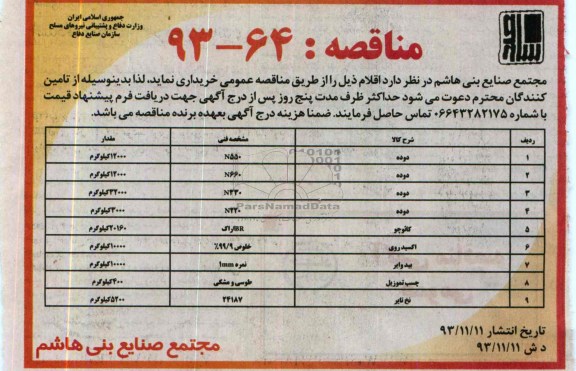 جمهوری اسلامی ایران
وزارت دفاع و پشتیبانی نیروهای مسلح
سازمان صنایع دفاع
مناقصه : ۶۴-۹۳
مجتمع صنایع بنی هاشم در نظر دارد اقلام ذیل را از طریق مناقصه عمومی خریداری نماید، لذا بدینوسیله از تامین
کنندگان محترم دعوت می شود حداکثر ظرف مدت پنج روز پس از درج آگهی جهت دریافت فرم پیشنهاد قیمت
با شماره ۰۶۶۴۳۲۸۲۱۷۵ تماس حاصل فرمایند. ضمنا هزینه درج آگهی بعهده برنده مناقصه می باشد.
ردیف شرح کالا مشخصه فنی مقدار
۱ دوده N۵۵۰ ۱۲۰۰۰کیلوگرم
۲ دوده N۶۶۰ ۱۲۰۰۰کیلوگرم
۳ دوده N۳۳۰ ۳۲۰۰۰کیلوگرم
۴ دوده N۲۲۰ ۳۰۰۰کیلوگرم
۵ کائوچو BRاراک ۲۰۱۶۰کیلوگرم
۶ اکسید روی خلوص ۹۹/۹٪ ۱۰۰۰۰کیلوگرم
۷ بید وایر نمره ۱mm ۱۰۰۰۰کیلوگرم
۸ چسب تموزیل طوسی و مشکی ۴۰۰کیلوگرم
۹ نخ تایر ۲۴۱۸۷ ۵۲۰۰کیلوگرم
ParsNamadData
تاریخ انتشار ۹۳/۱۱/۱۱
د ش ۹۳/۱۱/۱۱
مجتمع صنایع بنی هاشم